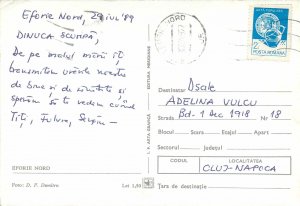 Eforie Nord, 29 iul '89
DINUCA SCUMPĂ,
De pe malul mării îți
transmitem urările noastre
de bine și de sănătate și
sperăm să te vedem curînd
Titi, Fulvia, Sergiu
EFORIE NORD
Foto: D. F. Dumitru
Lei 1,50
EDITURA MERIDIANE
I. P. ARTA GRAFICĂ
NORD
ARTA POPULARA
2
POSTA ROMANA
Destinatar Dsale
ADELINA VULCU
Bd-1 Dec 1918
Strada Nr 18
Blocul Scara Etajul Apart
Sectorul Județul
CODUL LOCALITATEA
CLUJ-NAPOCA
Țara de destinație